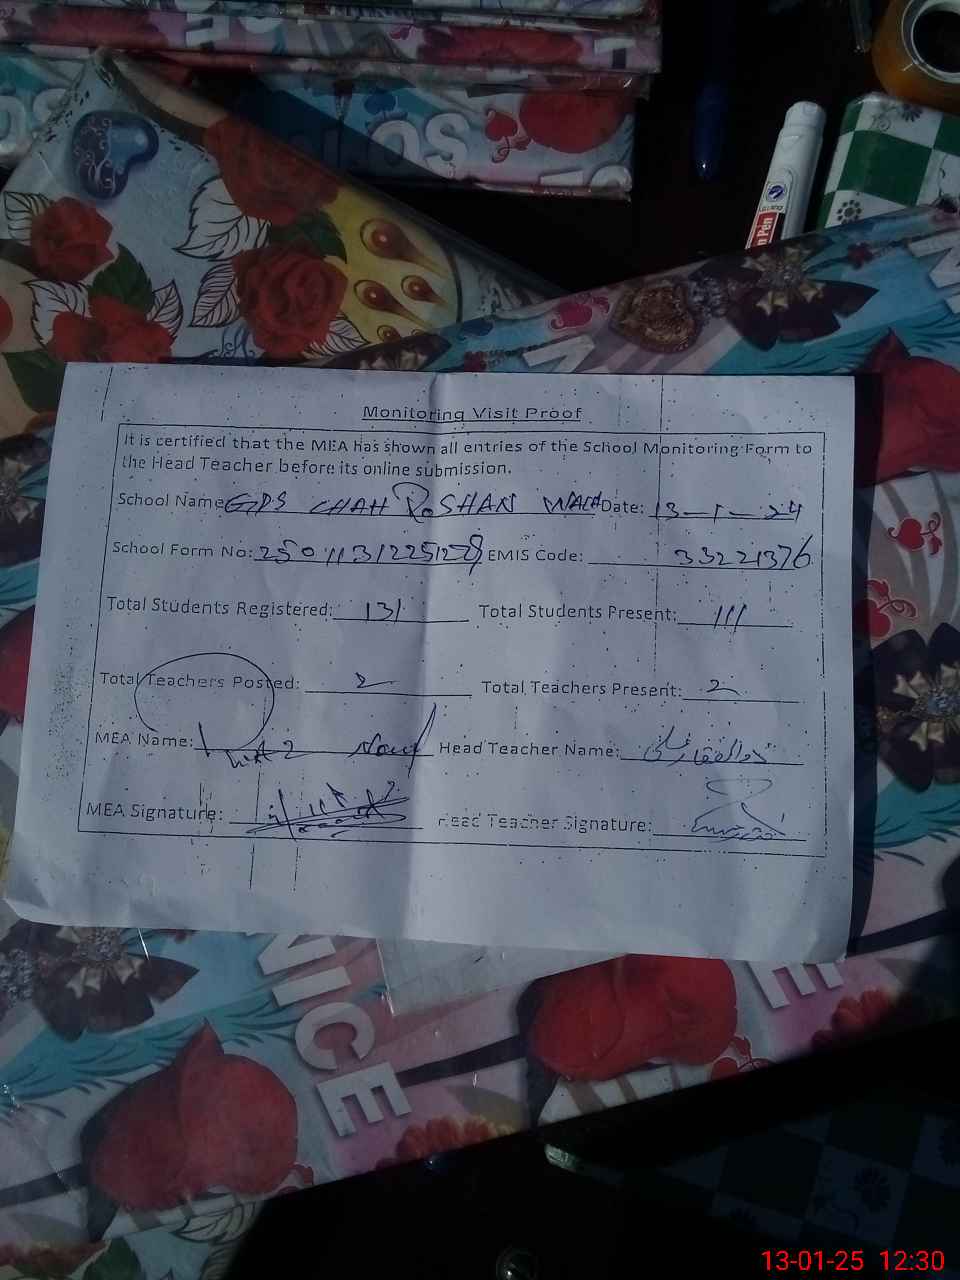 SO
NICE
n Pen
Monitoring Visit Proof
It is certified that the MEA has shown all entries of the School Monitoring Form to
the Head Teacher before its online submission.
School Name GPS CHAH ROSHAN WALA Date: 13-1-24
School Form No: EMIS Code: 33221376
Total Students Registered: 131 Total Students Present: 111
Total Teachers Posted: 2 Total Teachers Present: 2
MEA Name: Head Teacher Name:
MEA Signature: Head Teacher Signature:
NICE
13-01-25 12:30